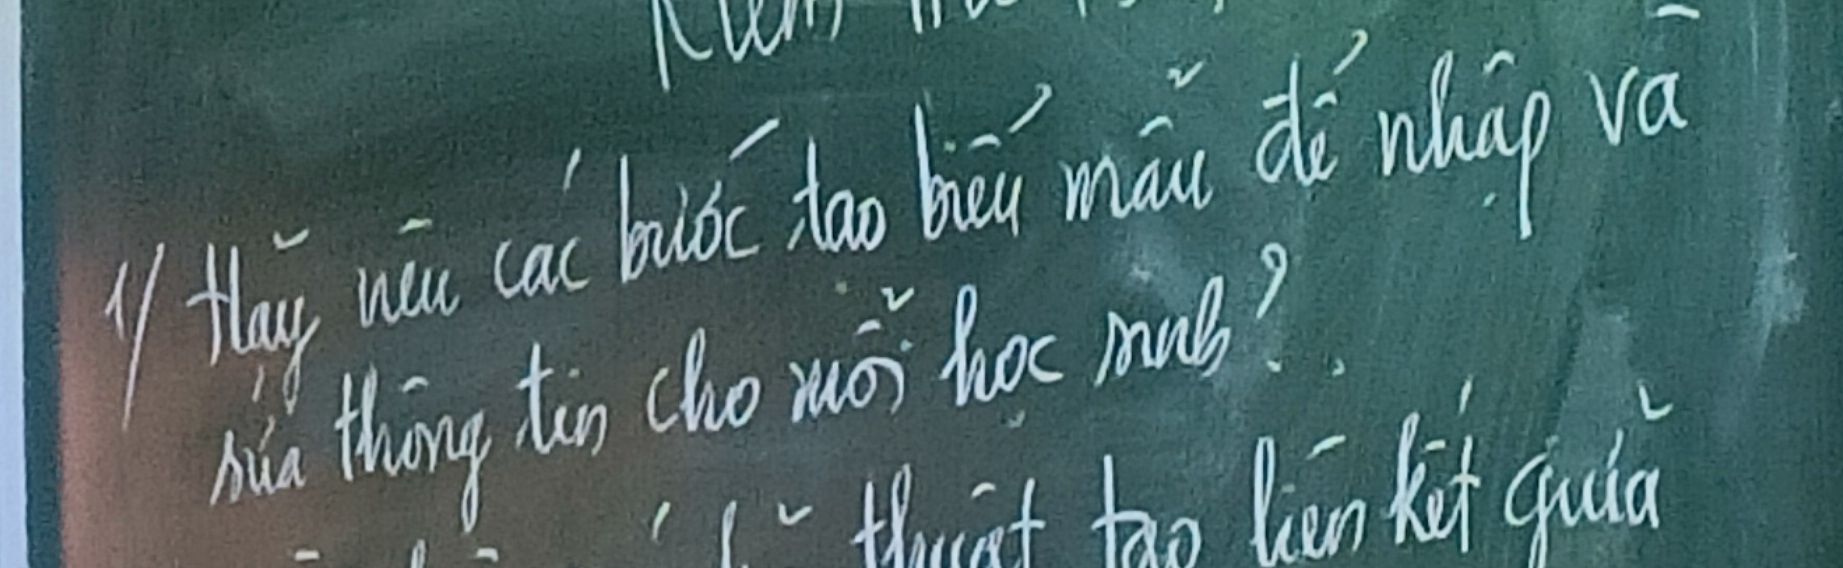 Kiểm tra
1/ Hãy nêu các bước tạo biểu mẫu để nhập và
sửa thông tin cho mỗi học sinh?
thuật tạo liên kết giữa